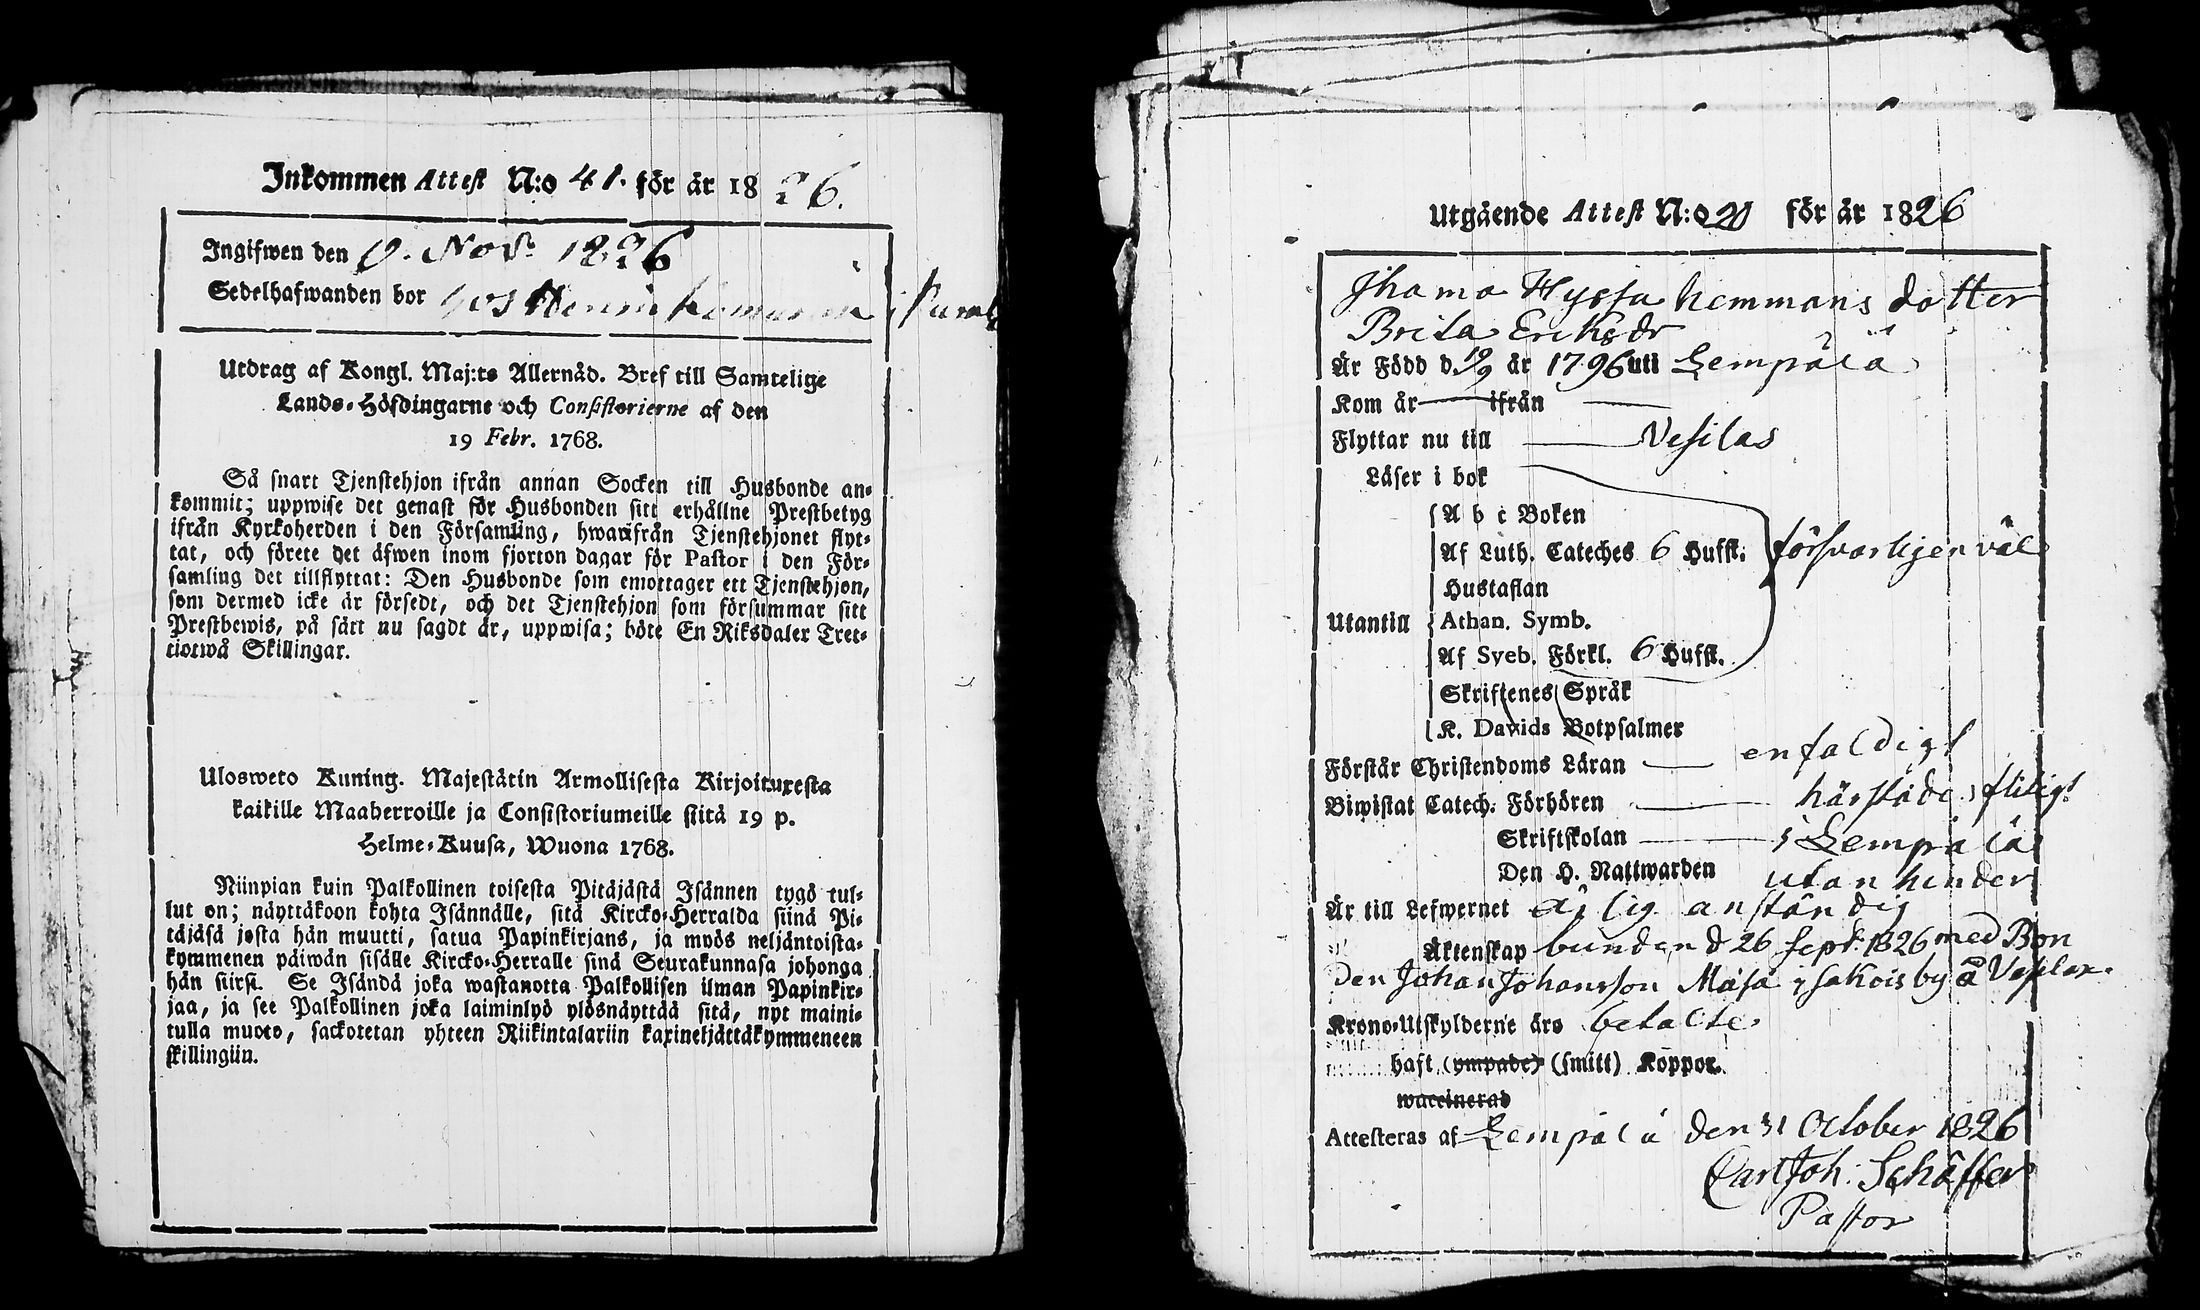 Inkommen Attest N:o 41. för år 1826.
Ingifwen den 9. Nov. 1826
Sedelhafwanden bor hos
Utdrag af Kongl. Maj:ts Allernåd. Bref till Samtelige
Lands-Höfdingarne och Consistorierne af den
19 Febr. 1768.
Så snart Tjenstehjon ifrån annan Socken till Husbonde an-
kommit; uppwise det genast för Husbonden sitt erhållne Prestbetyg
ifrån Kyrkoherden i den Församling, hwarifrån Tjenstehjonet flyt-
tat, och förete det äfwen inom fjorton dagar för Pastor i den För-
samling det tillflyttat: Den Husbonde som emottager ett Tjenstehjon,
som dermed icke är försedt, och det Tjenstehjon som försummar sitt
Prestbewis, på sätt nu sagdt är, uppwisa; böte En Riksdaler Tret-
tiotwå Skillingar.
Ulosweto Kuning. Majestätin Armollisesta Kirjoituxesta
kaikille Maaherroille ja Consistoriumeille siitä 19 p.
Helme-Kuusa, Wuona 1768.
Niinpian kuin Palkollinen toisesta Pitäjästä Isännen tygö tul-
lut on; näyttäkoon kohta Isännälle, sitä Kircko-Herralda siinä Pi-
täjäsä josta hän muutti, saatua Papinkirjans, ja myös neljäntoista-
kymmenen päiwän sisälle Kircko-Herralle sinä Seurakunnasa johonga
hän siirsi. Se Isändä joka wastanotta Palkollisen ilman Papinkir-
jaa, ja see Palkollinen joka laiminlyö ylösnäyttää sitä, nyt maini-
tulla muoto, sackotetan yhteen Riikintalariin kaxineljättäkymmeneen
skillingiin.
Utgående Attest N:o 20 för år 1826
Jhama Hyssa hemmans dotter
Brita Eriksdr
Är Född d. 19/9 år 1796 uti Lempälä
Kom år ifrån
Flyttar nu till Vesilax
Läser i bok
A b c Boken
Af Luth. Cateches 6 Hufst. försvarligen väl
Hustaflan
Utantill Athan. Symb.
Af Sveb. Förkl. 6 Hufst.
Skriftenes Språk
K. Davids Botpsalmer
Förstår Christendoms Läran enfaldigt
Biwistat Catech. Förhören härstädes flitigt
Skriftskolan i Lempälä
Den H. Nattwarden utan hinder
Är till Lefwernet ärlig anständig
Äktenskap bunden d 26 Sept. 1826 med Bon
den Johan Johansson Mäsä i Sakois by å Vesilax.
Krono-Utskylderne äro betalte
haft (ympade) (smitt) Koppor.
waccinerad
Attesteras af Lempälä den 31 October 1826
Carl Joh: Schäffer
Pastor